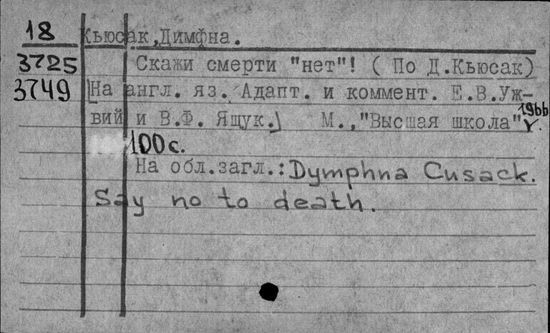 18
Кьюсак,Димфна.
3725
Скажи смерти "нет"! ( По Д.Кьюсак)
3749
[На англ. яз. Адапт. и коммент. Е.В.Уж-
вий и В.Ф. Ящук.] М.,"Высшая школа", 1966
100 с.
На обл.загл.: Dymphna Cusack.
Say no to death.